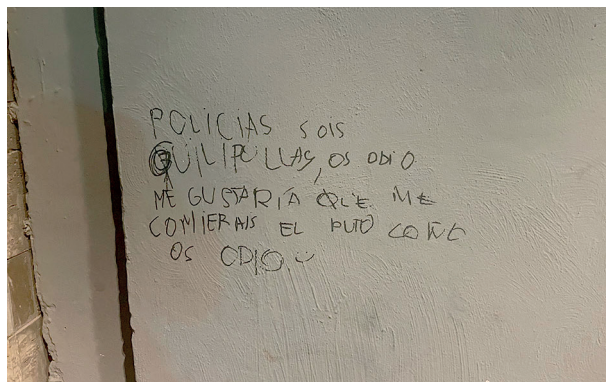 POLICIAS SOIS
GUILIPOLLAS, OS ODIO
ME GUSTARÍA QUE ME
COMIERAIS EL PUTO COÑO
OS ODIO.